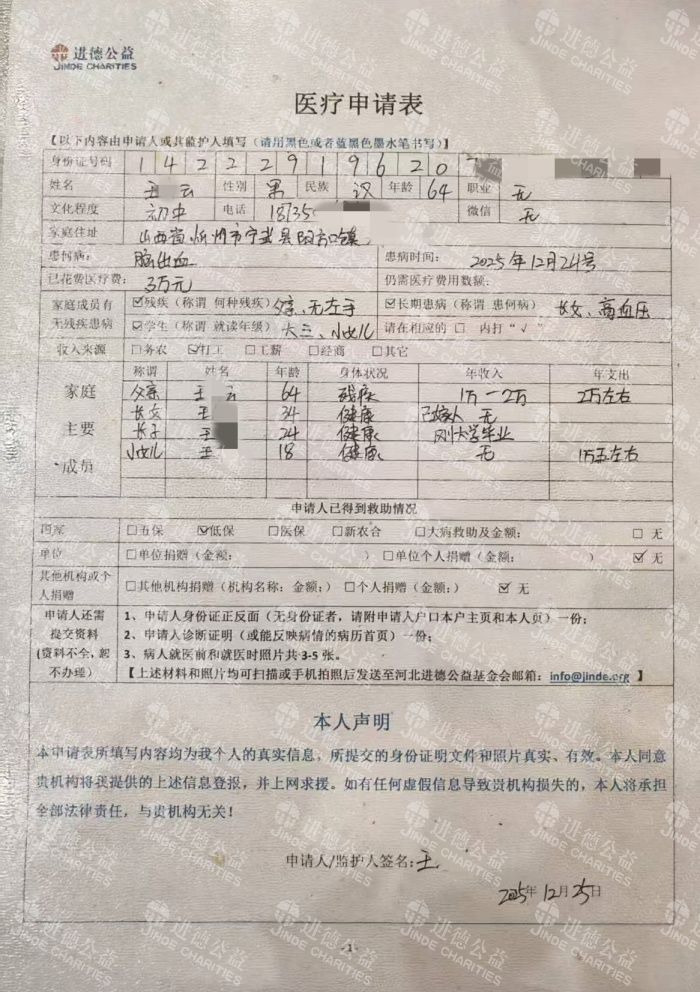 进德公益
JINDE CHARITIES
医疗申请表
【以下内容由申请人或其监护人填写（请用黑色或者蓝黑色墨水笔书写）】
身份证号码 1 4 2 2 2 9 1 9 6 2 0
姓名 王 云 性别 男 民族 汉 年龄 64 职业 无
文化程度 初中 电话 18735 微信 无
家庭住址 山西省忻州市宁武县阳方口镇
患何病： 脑出血 患病时间： 2025年12月24号
已花费医疗费： 3万元 仍需医疗费用数额：
家庭成员有无残疾患病 ☑残疾（称谓 何种残疾）父亲、无左手 ☑长期患病（称谓 患何病） 长女、高血压
☑学生（称谓 就读年级） 大三、小女儿 请在相应的 □ 内打“√”
收入来源 □务农 ☑打工 □工薪 □经商 □其它
家庭主要成员 称谓 姓名 年龄 身体状况 年收入 年支出
父亲 王 云 64 残疾 1万一2万 2万左右
长女 王 34 健康 已嫁人 无
长子 王 24 健康 刚大学毕业
小女儿 王 18 健康 无 1万五左右
申请人已得到救助情况
国家 □五保 ☑低保 □医保 □新农合 □大病救助及金额： □ 无
单位 □单位捐赠（金额： ） □单位个人捐赠（金额： ） ☑ 无
其他机构或个人捐赠 □其他机构捐赠（机构名称：金额：） □个人捐赠（金额：） ☑ 无
申请人还需提交资料（资料不全，恕不办理）
1、申请人身份证正反面（无身份证者，请附申请人户口本户主页和本人页）一份；
2、申请人诊断证明（或能反映病情的病历首页）一份；
3、病人就医前和就医时照片共3-5张。
【上述材料和照片均可扫描或手机拍照后发送至河北进德公益基金会邮箱：info@jinde.org】
本人声明
本申请表所填写内容均为我个人的真实信息，所提交的身份证明文件和照片真实、有效。本人同意
贵机构将我提供的上述信息登报，并上网求援。如有任何虚假信息导致贵机构损失的，本人将承担
全部法律责任，与贵机构无关！
申请人/监护人签名：王
2025年12月25日
-1-